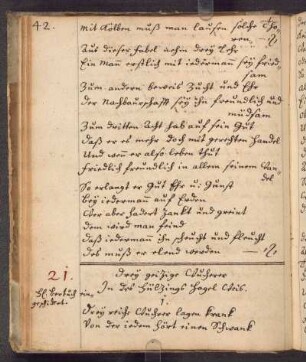 42.
Mit Kolben muß man lausen solche Tho-
ren
Aus dieser fabel ziehn drey Lehr
Ein Man erstlich mit iederman sey fried-
sam
Zum andern beweis Zucht und Ehr
der Nachbaurschafft sey ihn freundlich und
Zum dritten Acht hab auf sein Gut
daß er es mehr doch mit gerechten handel
Und wen er also leben thut
friedlich freundlich in allem seinem Wan-
del
So erlangt er Gut Ehr u: Gunst
Bey iederman auf Erden
Wer aber hadert zankt und greint
dem wird man feind
daß iederman ihn scheucht und fleucht
des muß er elend werden
21.
drey geizige Wucherer
In des Hülzings Hagel Weis.
1.
Drey reiche Wucherer lagen krank
Von der iedem hört einen Schwank